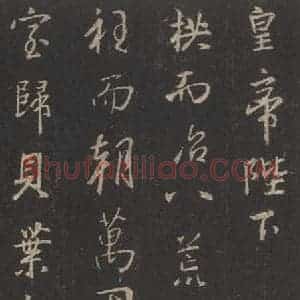 皇帝陛下
拱而治八荒
衽而朝萬
室歸貝葉
shufaziliao.COM